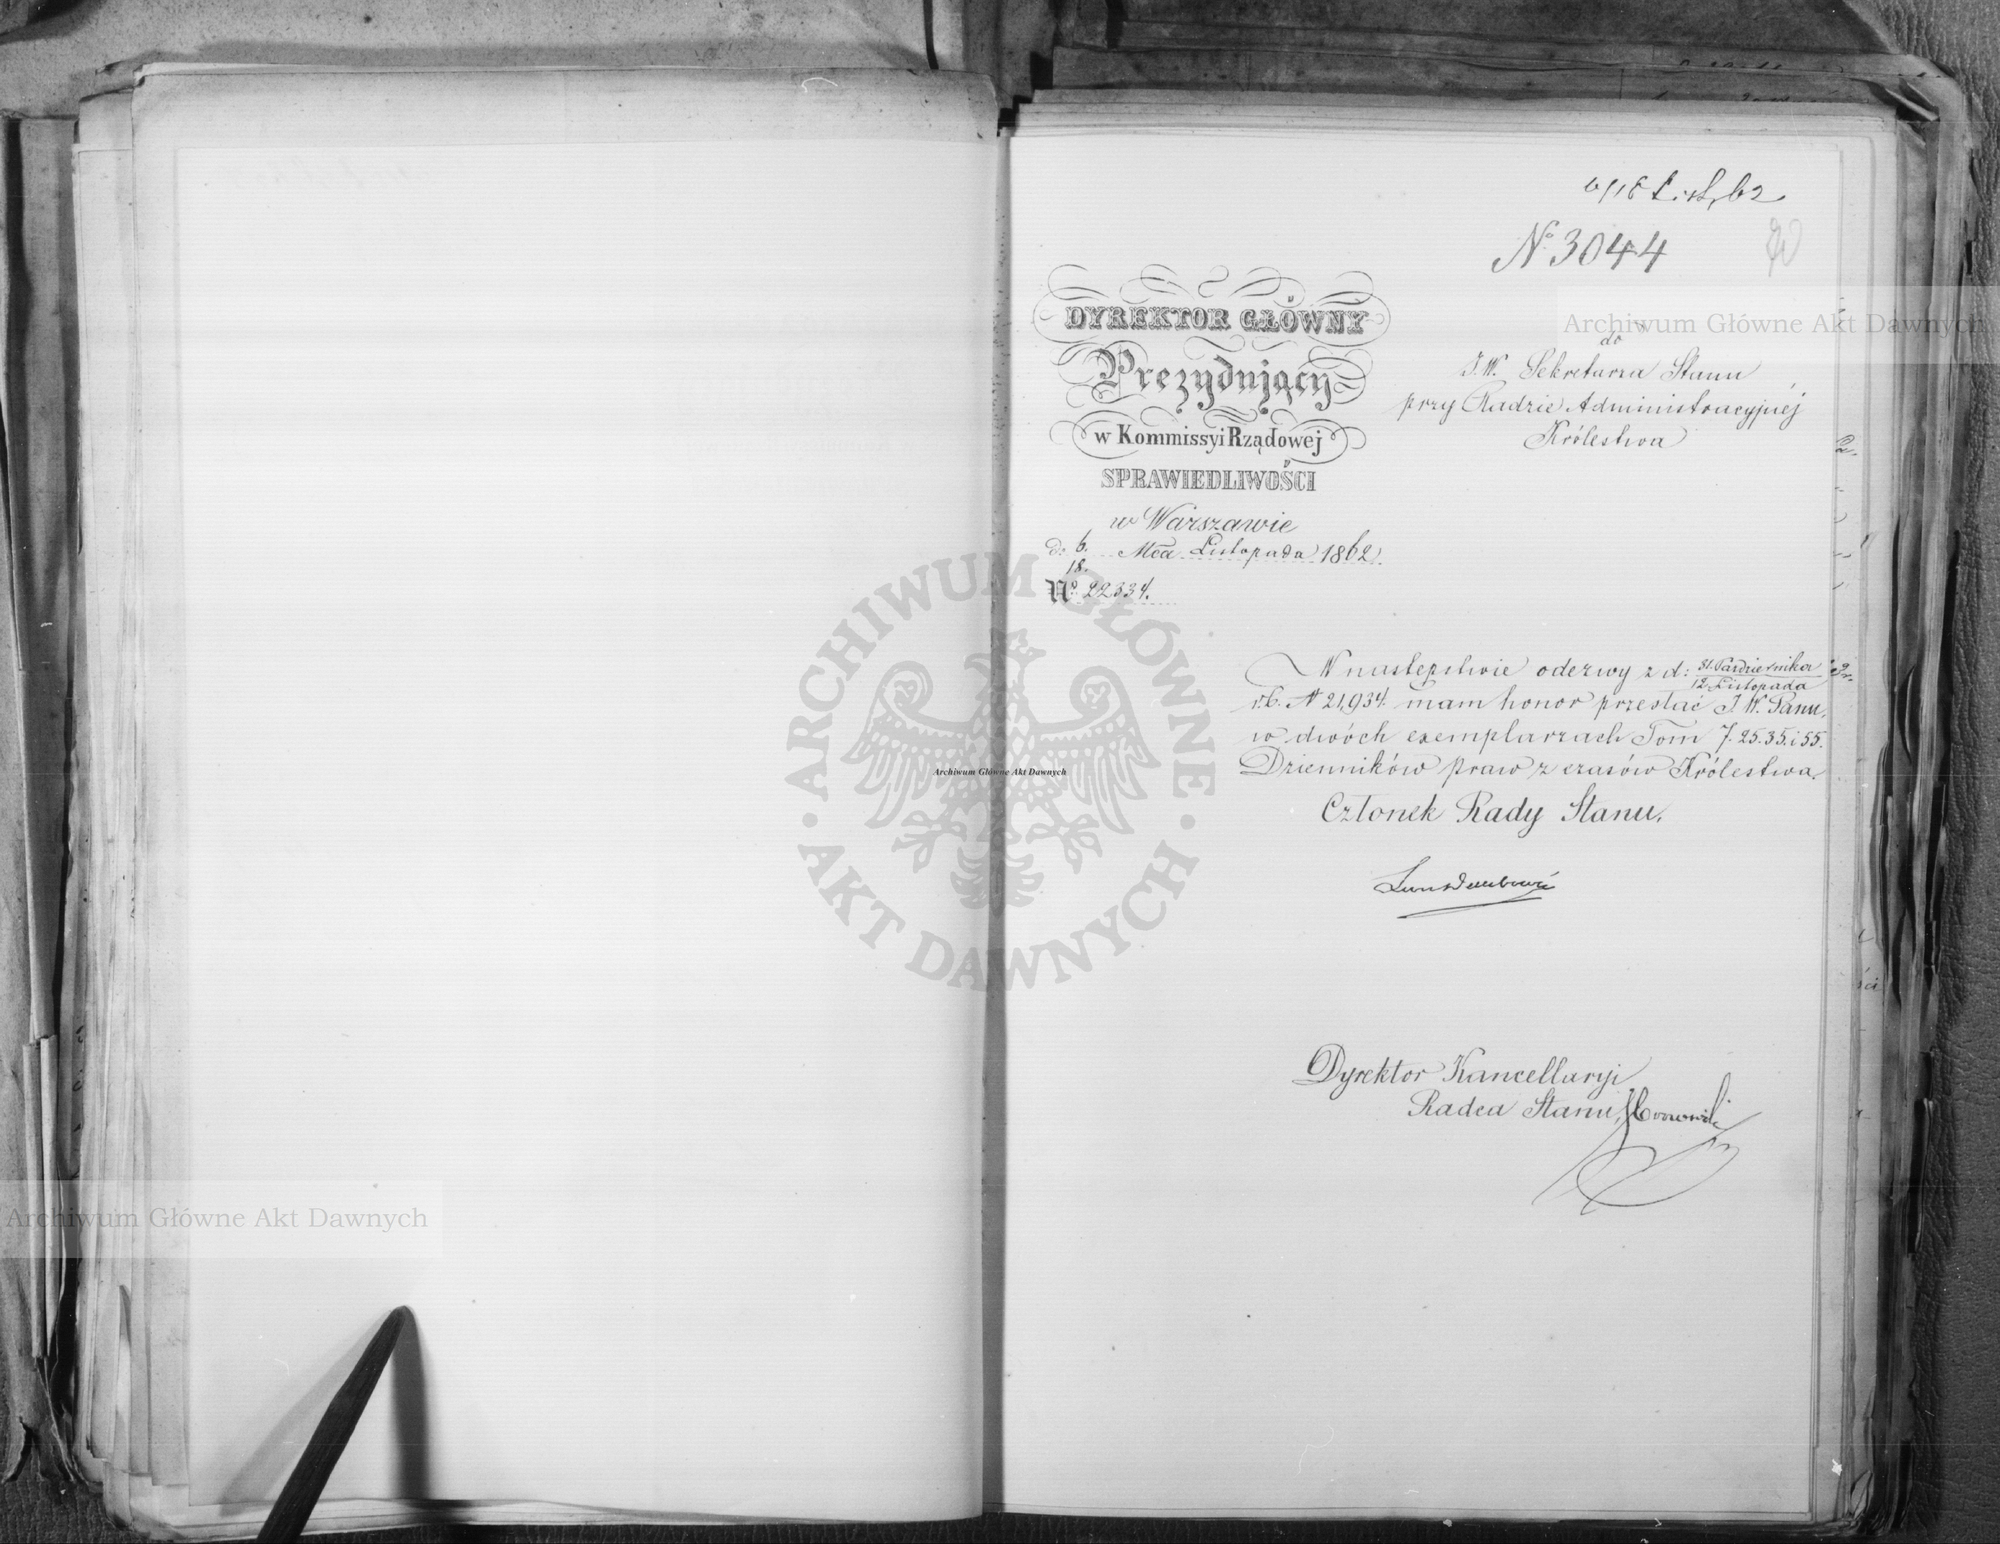 6/18 List, 62
№ 3044
DYREKTOR GŁÓWNY
Prezydujący
w Kommissyi Rządowej
SPRAWIEDLIWOŚCI
w Warszawie
d: 6. / 18. Mca Listopada 1862.
№ 22334.
do
J.W. Sekretarza Stanu
przy Radzie Administracyjnej
Królestwa
W następstwie odezwy z d: 31. Października / 12. Listopada
r.b. № 21,934. mam honor przesłać J.W. Panu,
w dwóch exemplarzach Tom 7. 25. 35. i 55.
Dzienników praw z czasów Królestwa.
Członek Rady Stanu,
Dyrektor Kancellaryi
Radca Stanu,
Archiwum Główne Akt Dawnych
ARCHIWUM GŁÓWNE AKT DAWNYCH
Archiwum Główne Akt Dawnych
Archiwum Główne Akt Dawnych